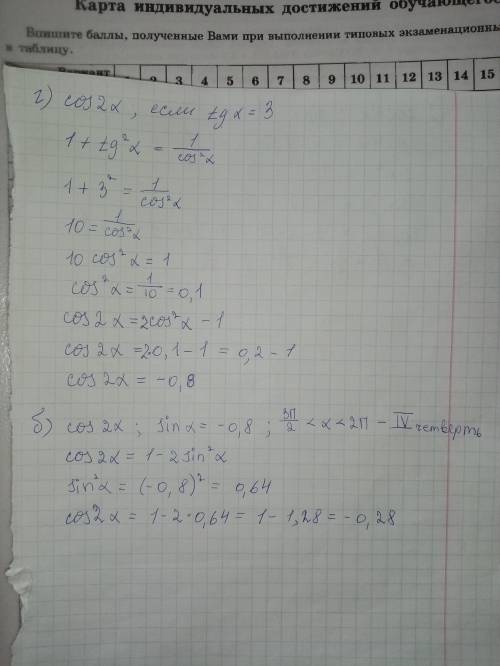 Карта индивидуальных достижений обучающегос
Впишите баллы, полученные Вами при выполнении типовых экзаменационны
в таблицу.
Вариант 1 2 3 4 5 6 7 8 9 10 11 12 13 14 15
г) cos2α, если tgα = 3
1 + tg²α = 1/cos²α
1 + 3² = 1/cos²α
10 = 1/cos²α
10 cos²α = 1
cos²α = 1/10 = 0,1
cos2α = 2cos²α − 1
cos2α = 2·0,1 − 1 = 0,2 − 1
cos2α = −0,8
б) cos2α; sinα = −0,8; 3П/2 < α < 2П − IV четверть
cos2α = 1 − 2sin²α
sin²α = (−0,8)² = 0,64
cos2α = 1 − 2·0,64 = 1 − 1,28 = −0,28